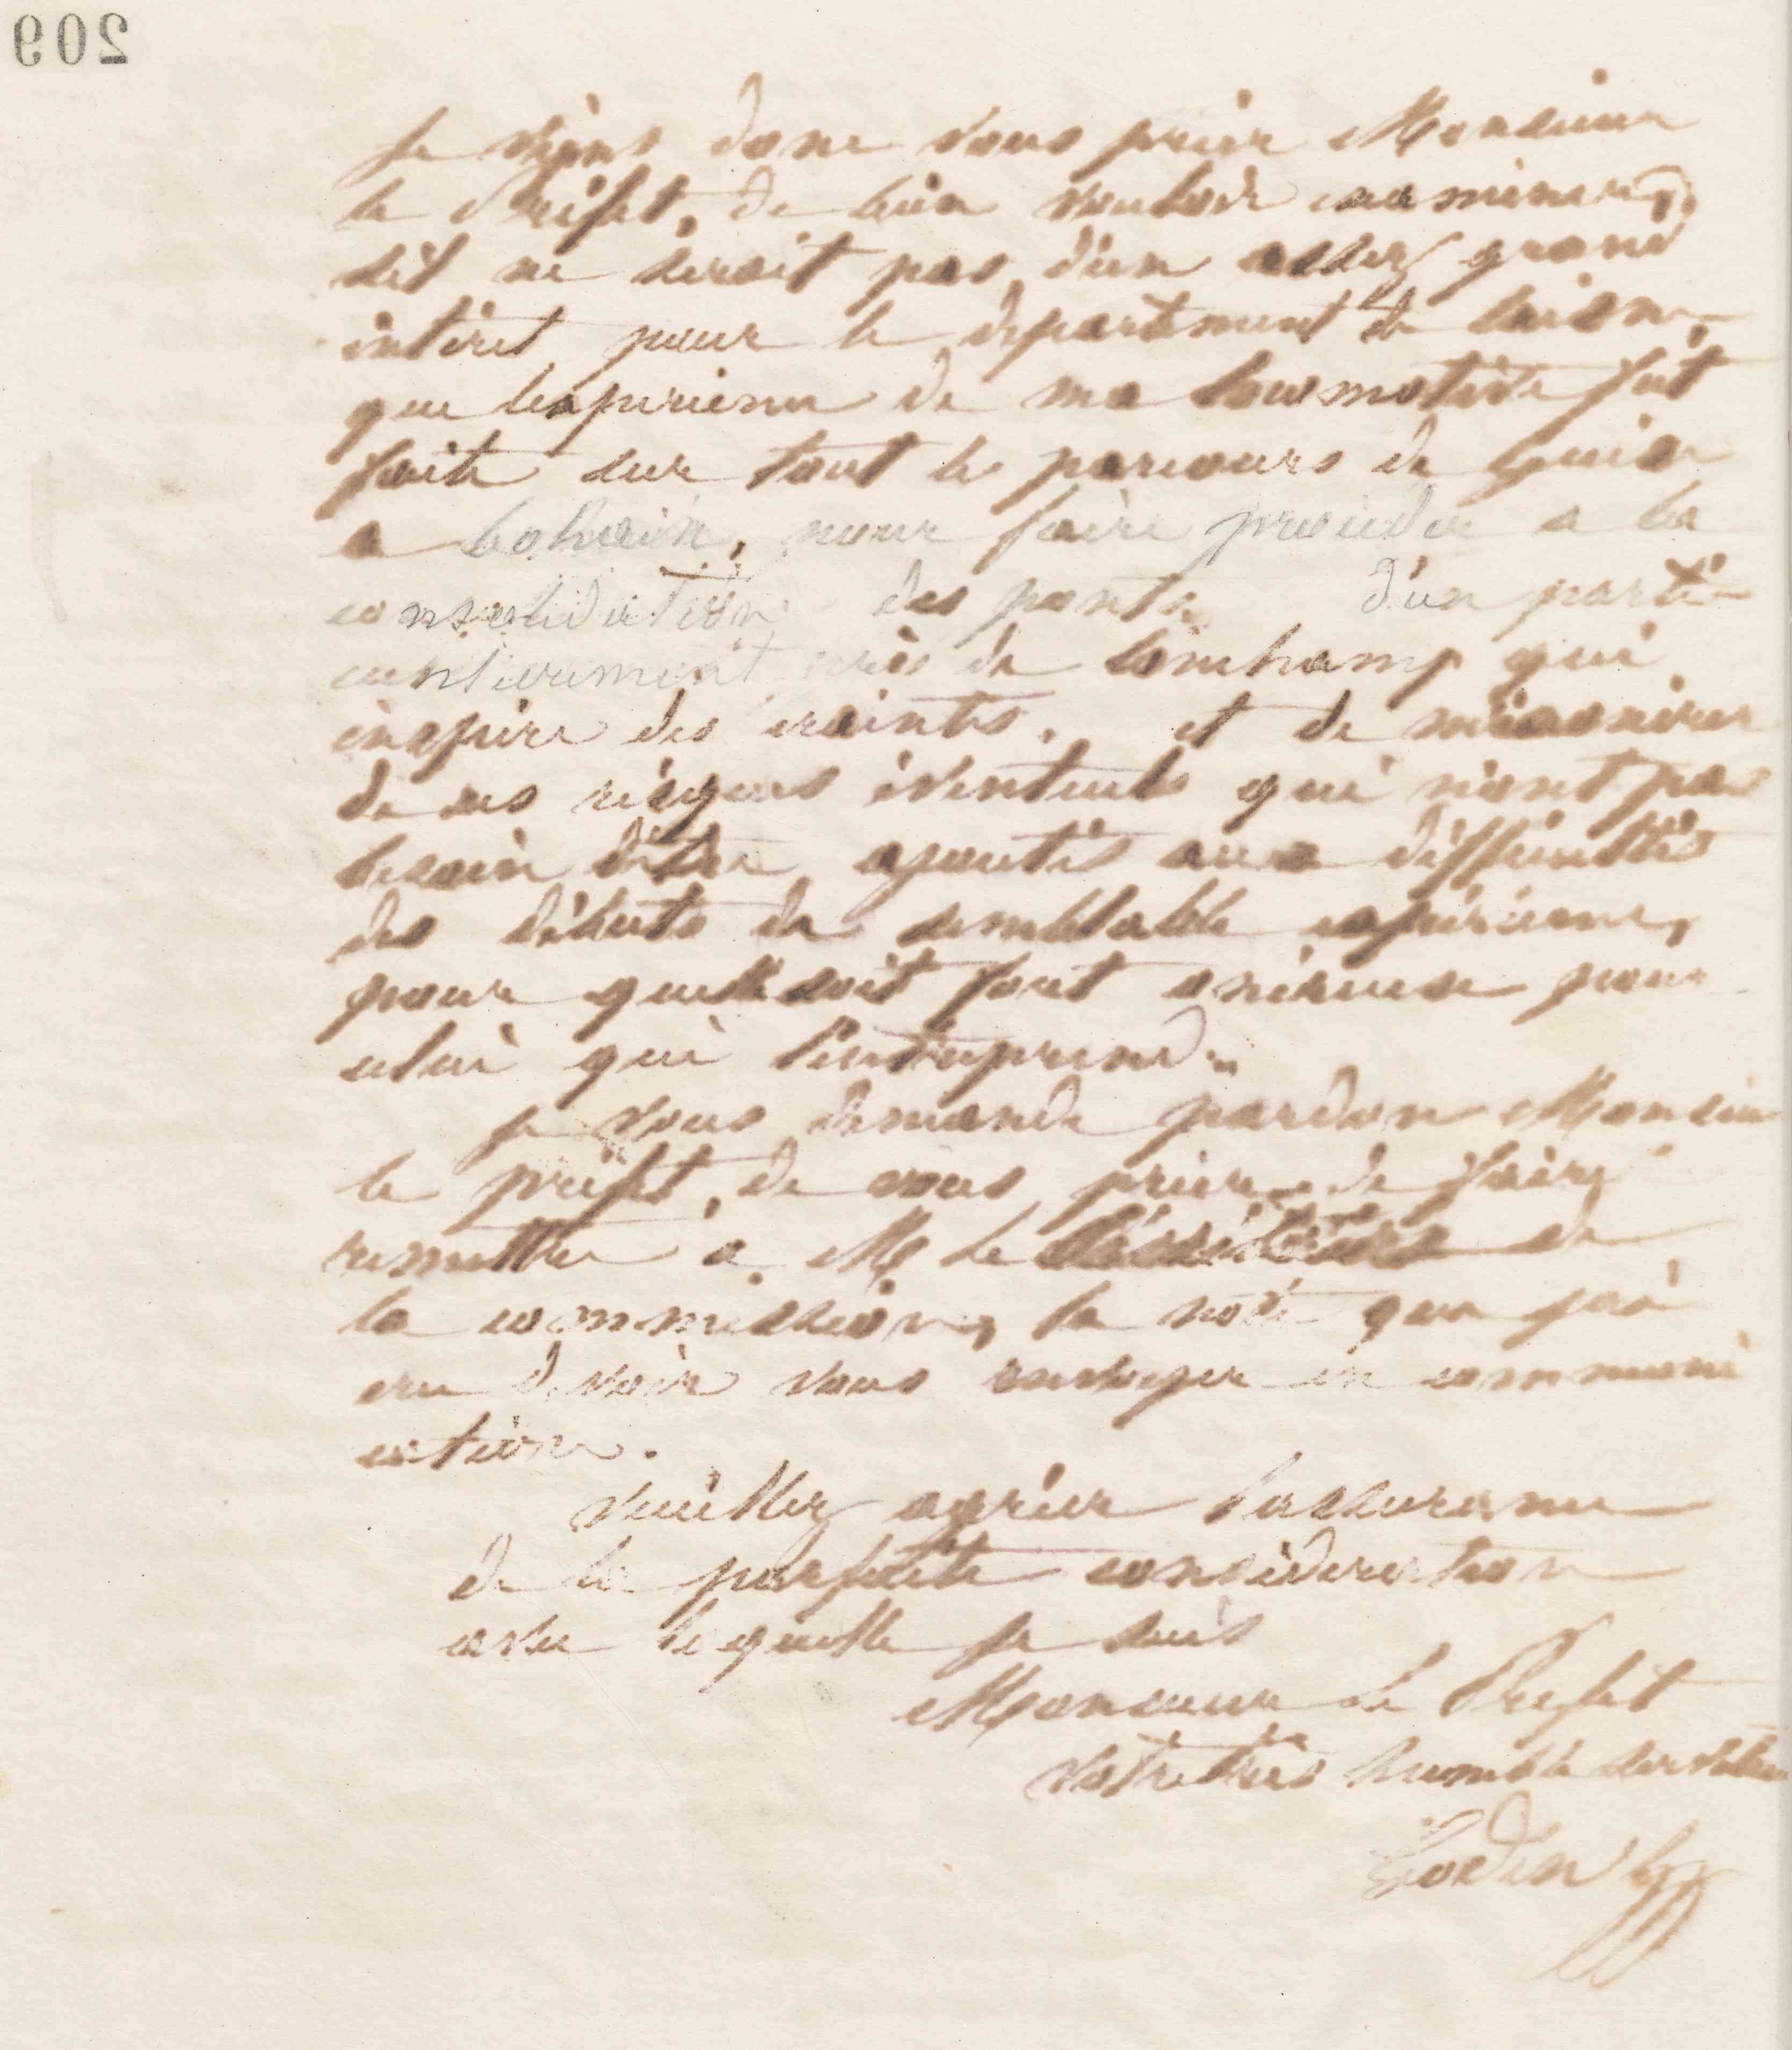 209
Je viens donc vous prier Monsieur
le Préfet, de bien vouloir examiner,
s'il ne serait pas d'un assez grand
intérêt pour le département de l'aisne,
que l'expérience de ma locomotive fut
faite sur tout le parcours de Guise
a bohain, pour faire procéder a la
consolidation des ponts, d'un parti-
culièrement près de Lonchamp qui
inspire des craintes, et de
de ces risques éventuels qui n'ont pas
besoin d'être ajoutés aux difficultés
des débuts de semblable expérience,
pour quelle soit fort onéreuse pour
celui qui l'entreprend.
Je vous demande pardon Monsieur
le préfet, de vous prier de faire
remettre à M le Secrétaire de
la commission, la note que j'ai
cru devoir vous envoyer en communi
cation.
Veuillez agréer l'assurance
de la parfaite considération
avec laquelle je suis
Monsieur le Préfet
Votre très humble serviteur
Godin